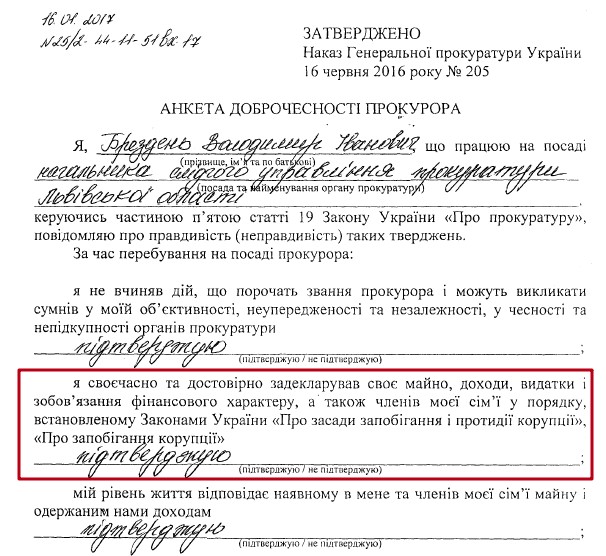 16.01.2017
N25/2-44-11-51вх-17
ЗАТВЕРДЖЕНО
Наказ Генеральної прокуратури України
16 червня 2016 року № 205
АНКЕТА ДОБРОЧЕСНОСТІ ПРОКУРОРА
Я, Брездень Володимир Іванович, що працюю на посаді
(прізвище, ім’я та по батькові)
начальника слідчого управління прокуратури
(посада та найменування органу прокуратури)
Львівської області,
керуючись частиною п’ятою статті 19 Закону України «Про прокуратуру»,
повідомляю про правдивість (неправдивість) таких тверджень.
За час перебування на посаді прокурора:
я не вчиняв дій, що порочать звання прокурора і можуть викликати
сумнів у моїй об’єктивності, неупередженості та незалежності, у чесності та
непідкупності органів прокуратури
підтверджую;
(підтверджую / не підтверджую)
я своєчасно та достовірно задекларував своє майно, доходи, видатки і
зобов’язання фінансового характеру, а також членів моєї сім’ї у порядку,
встановленому Законами України «Про засади запобігання і протидії корупції»,
«Про запобігання корупції»
підтверджую;
(підтверджую / не підтверджую)
мій рівень життя відповідає наявному в мене та членів моєї сім’ї майну і
одержаним нами доходам
підтверджую;
(підтверджую / не підтверджую)